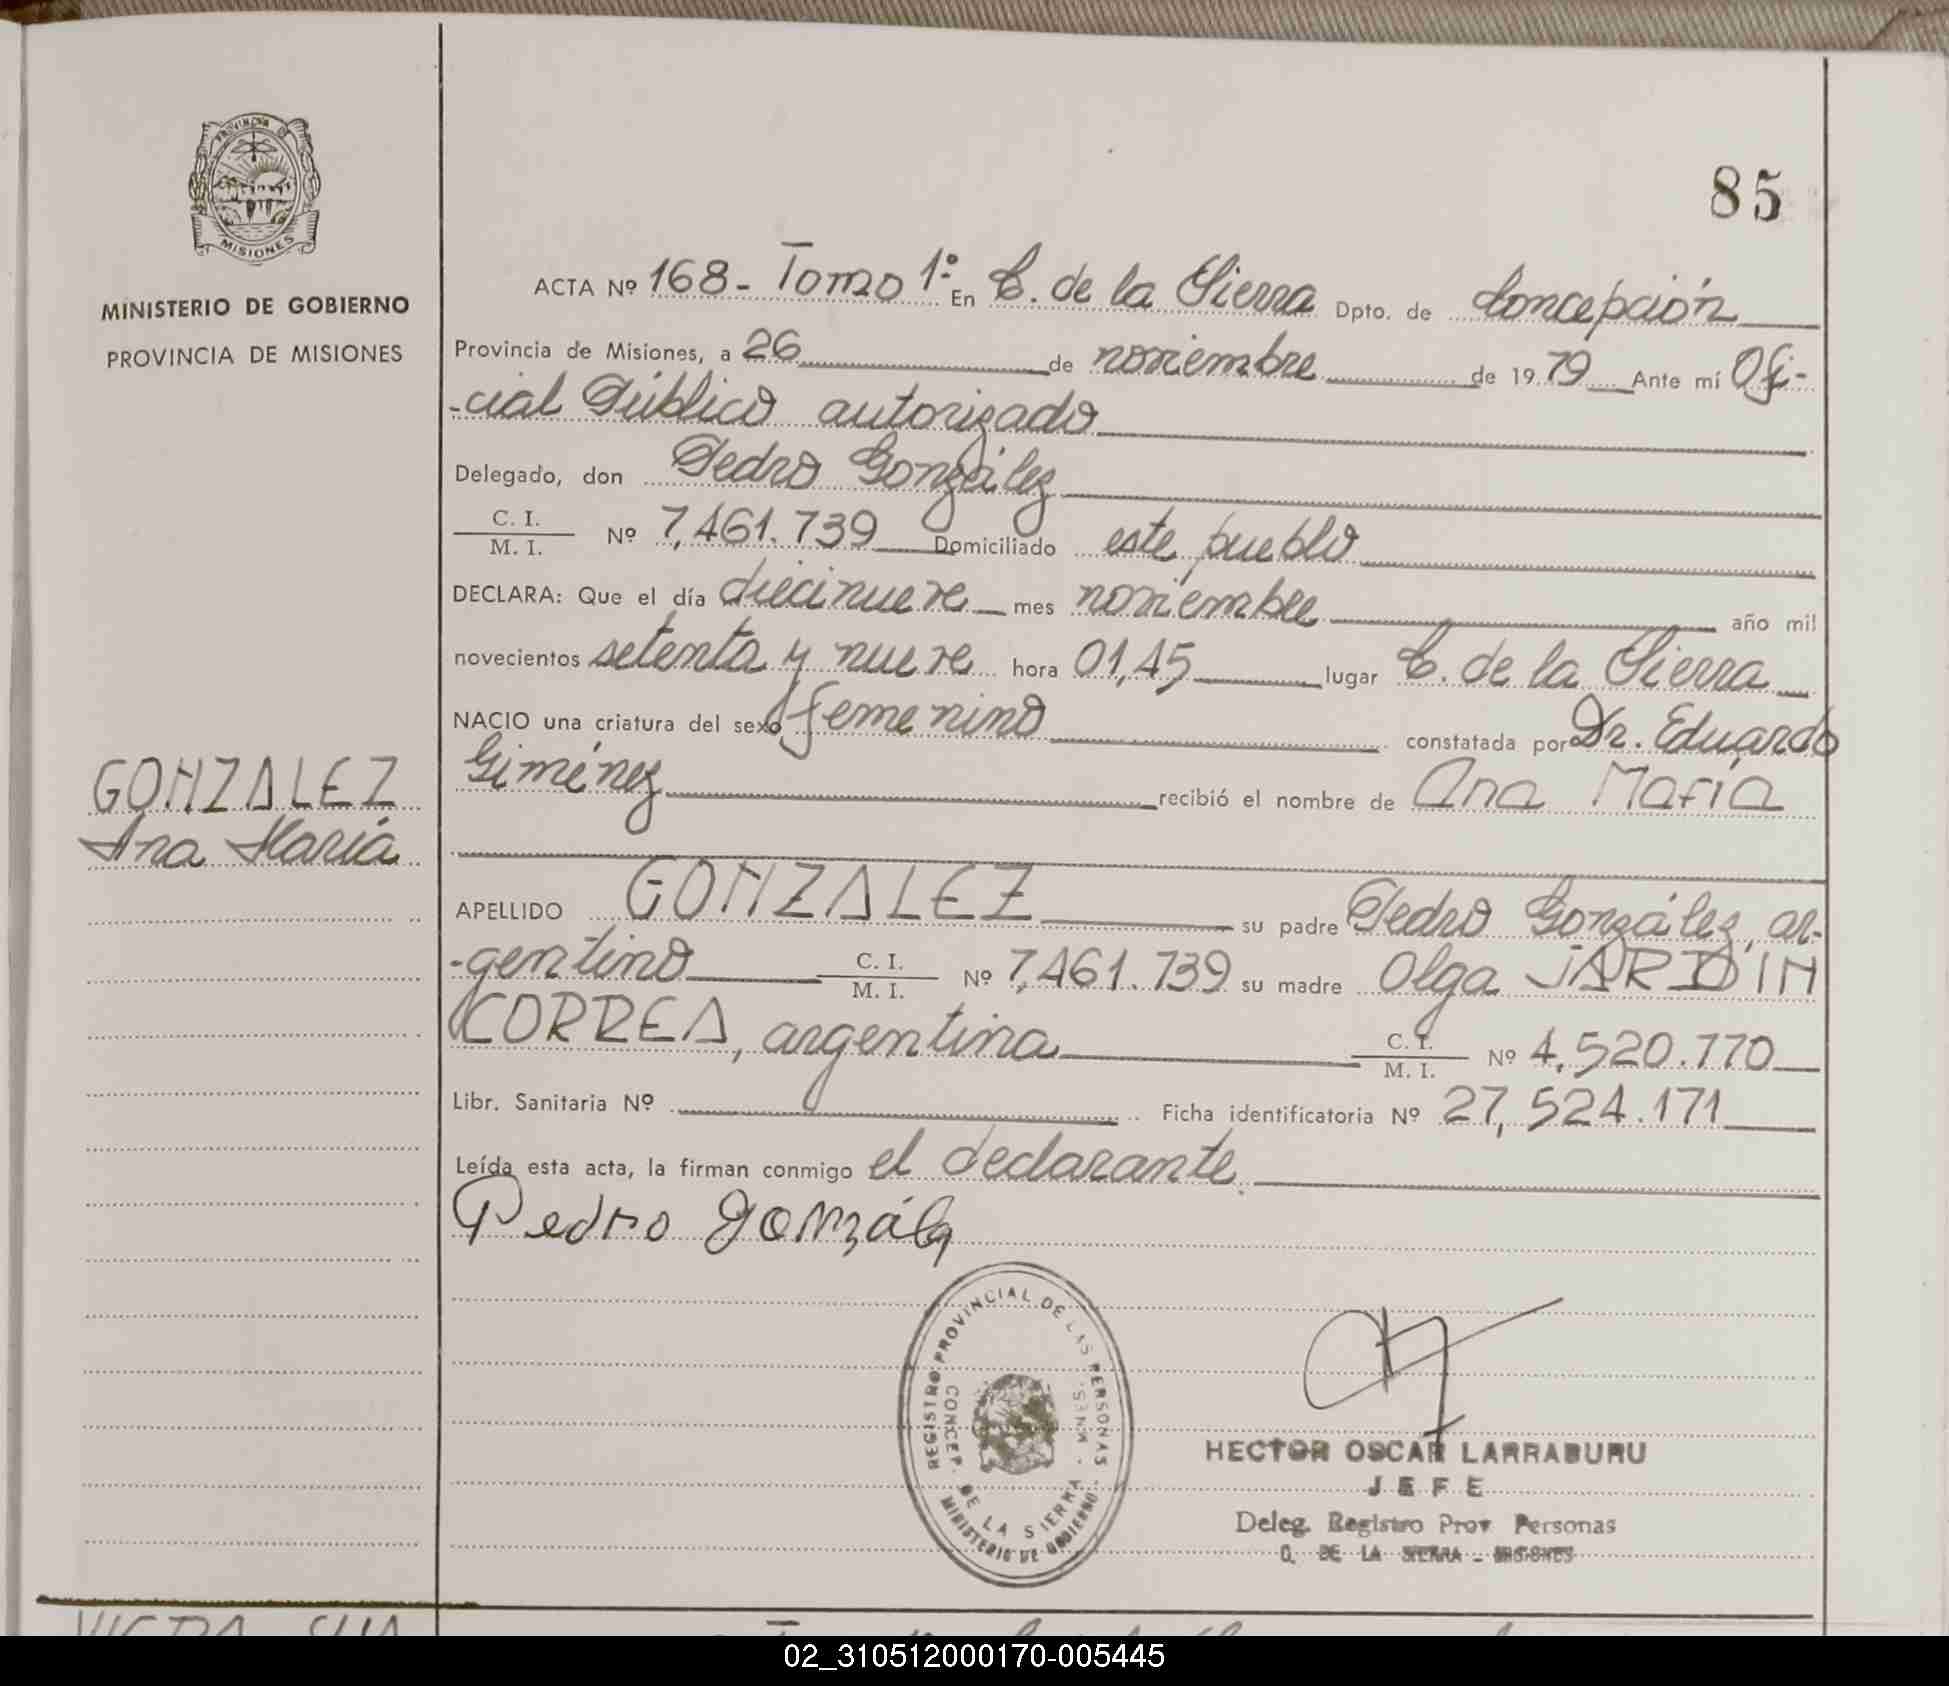 PROVINCIA DE
MISIONES
MINISTERIO DE GOBIERNO
PROVINCIA DE MISIONES
GONZALEZ
Ana María
85
ACTA Nº 168- Tomo 1º En C. de la Sierra Dpto. de Concepción
Provincia de Misiones, a 26 de noviembre de 1979 Ante mí Ofi-
-cial Público autorizado
Delegado, don Pedro González
C. I.
M. I. Nº 7,461.739 Domiciliado este pueblo
DECLARA: Que el día diecinueve mes noviembre año mil
novecientos setenta y nueve hora 01,45 lugar C. de la Sierra
NACIO una criatura del sexo femenino constatada por Dr. Eduardo
Giménez recibió el nombre de Ana María
APELLIDO GONZALEZ su padre Pedro González, ar-
-gentino C. I.
M. I. Nº 7,461.739 su madre Olga JARDIN
CORREA, argentina C. I.
M. I. Nº 4,520.770
Libr. Sanitaria Nº Ficha identificatoria Nº 27,524.171
Leída esta acta, la firman conmigo el declarante.
Pedro González
REGISTRO PROVINCIAL DE LAS PERSONAS
CONCEP. DE LA SIERRA - MNES.
MINISTERIO DE GOBIERNO
HECTOR OSCAR LARRABURU
JEFE
Deleg. Registro Prov Personas
C. DE LA SIERRA - MISIONES
02_310512000170-005445